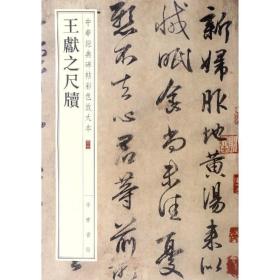 中華經典碑帖彩色放大本
王獻之尺牘
中華書局
新婦服地黄湯来似
減眠食尚未佳憂
懸不去心君等前所